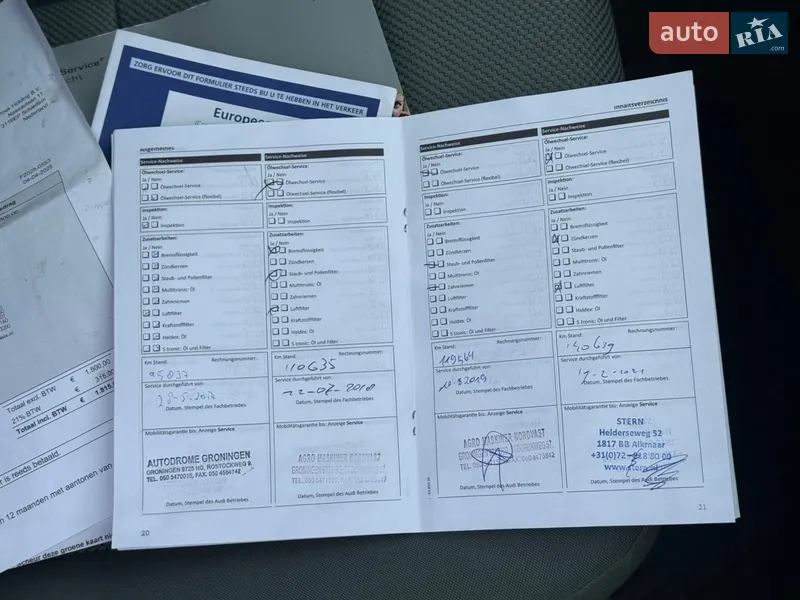 auto RIA .com
Service
F2023-0253
04-04-2023
Nederland
€ 1.500,00
Totaal excl. BTW € 315,00
21% BTW €
Totaal incl. BTW
er is reeds betaald.
12 maanden met aantonen van
ZORG ERVOOR DIT FORMULIER STEEDS BIJ U TE HEBBEN IN HET VERKEER
Allgemeines
Service-Nachweise
Ölwechsel-Service:
Ja / Nein
Ölwechsel-Service
Ölwechsel-Service (flexibel)
Inspektion:
Ja / Nein
Inspektion
Zusatzarbeiten:
Ja / Nein
Bremsflüssigkeit
Zündkerzen
Staub- und Pollenfilter
Multitronic: Öl
Zahnriemen
Luftfilter
Kraftstofffilter
Haldex: Öl
S tronic: Öl und Filter
Km Stand: Rechnungsnummer:
95837
Service durchgeführt von:
Datum, Stempel des Fachbetriebes
Mobilitätsgarantie bis: Anzeige Service
AUTODROME GRONINGEN
GRONINGEN 9723 HG, ROSTOCKWEG 9,
TEL. 050 5470015, FAX. 050 4554742
Datum, Stempel des Audi Betriebes
20
Service-Nachweise
Ölwechsel-Service:
Ja / Nein
Ölwechsel-Service
Ölwechsel-Service (flexibel)
Inspektion:
Ja / Nein
Inspektion
Zusatzarbeiten:
Ja / Nein
Bremsflüssigkeit
Zündkerzen
Staub- und Pollenfilter
Multitronic: Öl
Zahnriemen
Luftfilter
Kraftstofffilter
Haldex: Öl
S tronic: Öl und Filter
Km Stand: Rechnungsnummer:
110635
Service durchgeführt von:
22-07-2018
Datum, Stempel des Fachbetriebes
Mobilitätsgarantie bis: Anzeige Service
Datum, Stempel des Audi Betriebes
Inhaltsverzeichnis
Service-Nachweise
Ölwechsel-Service:
Ja / Nein
Ölwechsel-Service
Ölwechsel-Service (flexibel)
Inspektion:
Ja / Nein
Inspektion
Zusatzarbeiten:
Ja / Nein
Bremsflüssigkeit
Zündkerzen
Staub- und Pollenfilter
Multitronic: Öl
Zahnriemen
Luftfilter
Kraftstofffilter
Haldex: Öl
S tronic: Öl und Filter
Km Stand: Rechnungsnummer:
Service durchgeführt von:
Datum, Stempel des Fachbetriebes
Mobilitätsgarantie bis: Anzeige Service
Datum, Stempel des Audi Betriebes
Service-Nachweise
Ölwechsel-Service:
Ja / Nein
Ölwechsel-Service
Ölwechsel-Service (flexibel)
Inspektion:
Ja / Nein
Inspektion
Zusatzarbeiten:
Ja / Nein
Bremsflüssigkeit
Zündkerzen
Staub- und Pollenfilter
Multitronic: Öl
Zahnriemen
Luftfilter
Kraftstofffilter
Haldex: Öl
S tronic: Öl und Filter
Km Stand: Rechnungsnummer:
140639
Service durchgeführt von:
Datum, Stempel des Fachbetriebes
Mobilitätsgarantie bis: Anzeige Service
STERN
Helderseweg 52
1817 BB Alkmaar
Datum, Stempel des Audi Betriebes
21